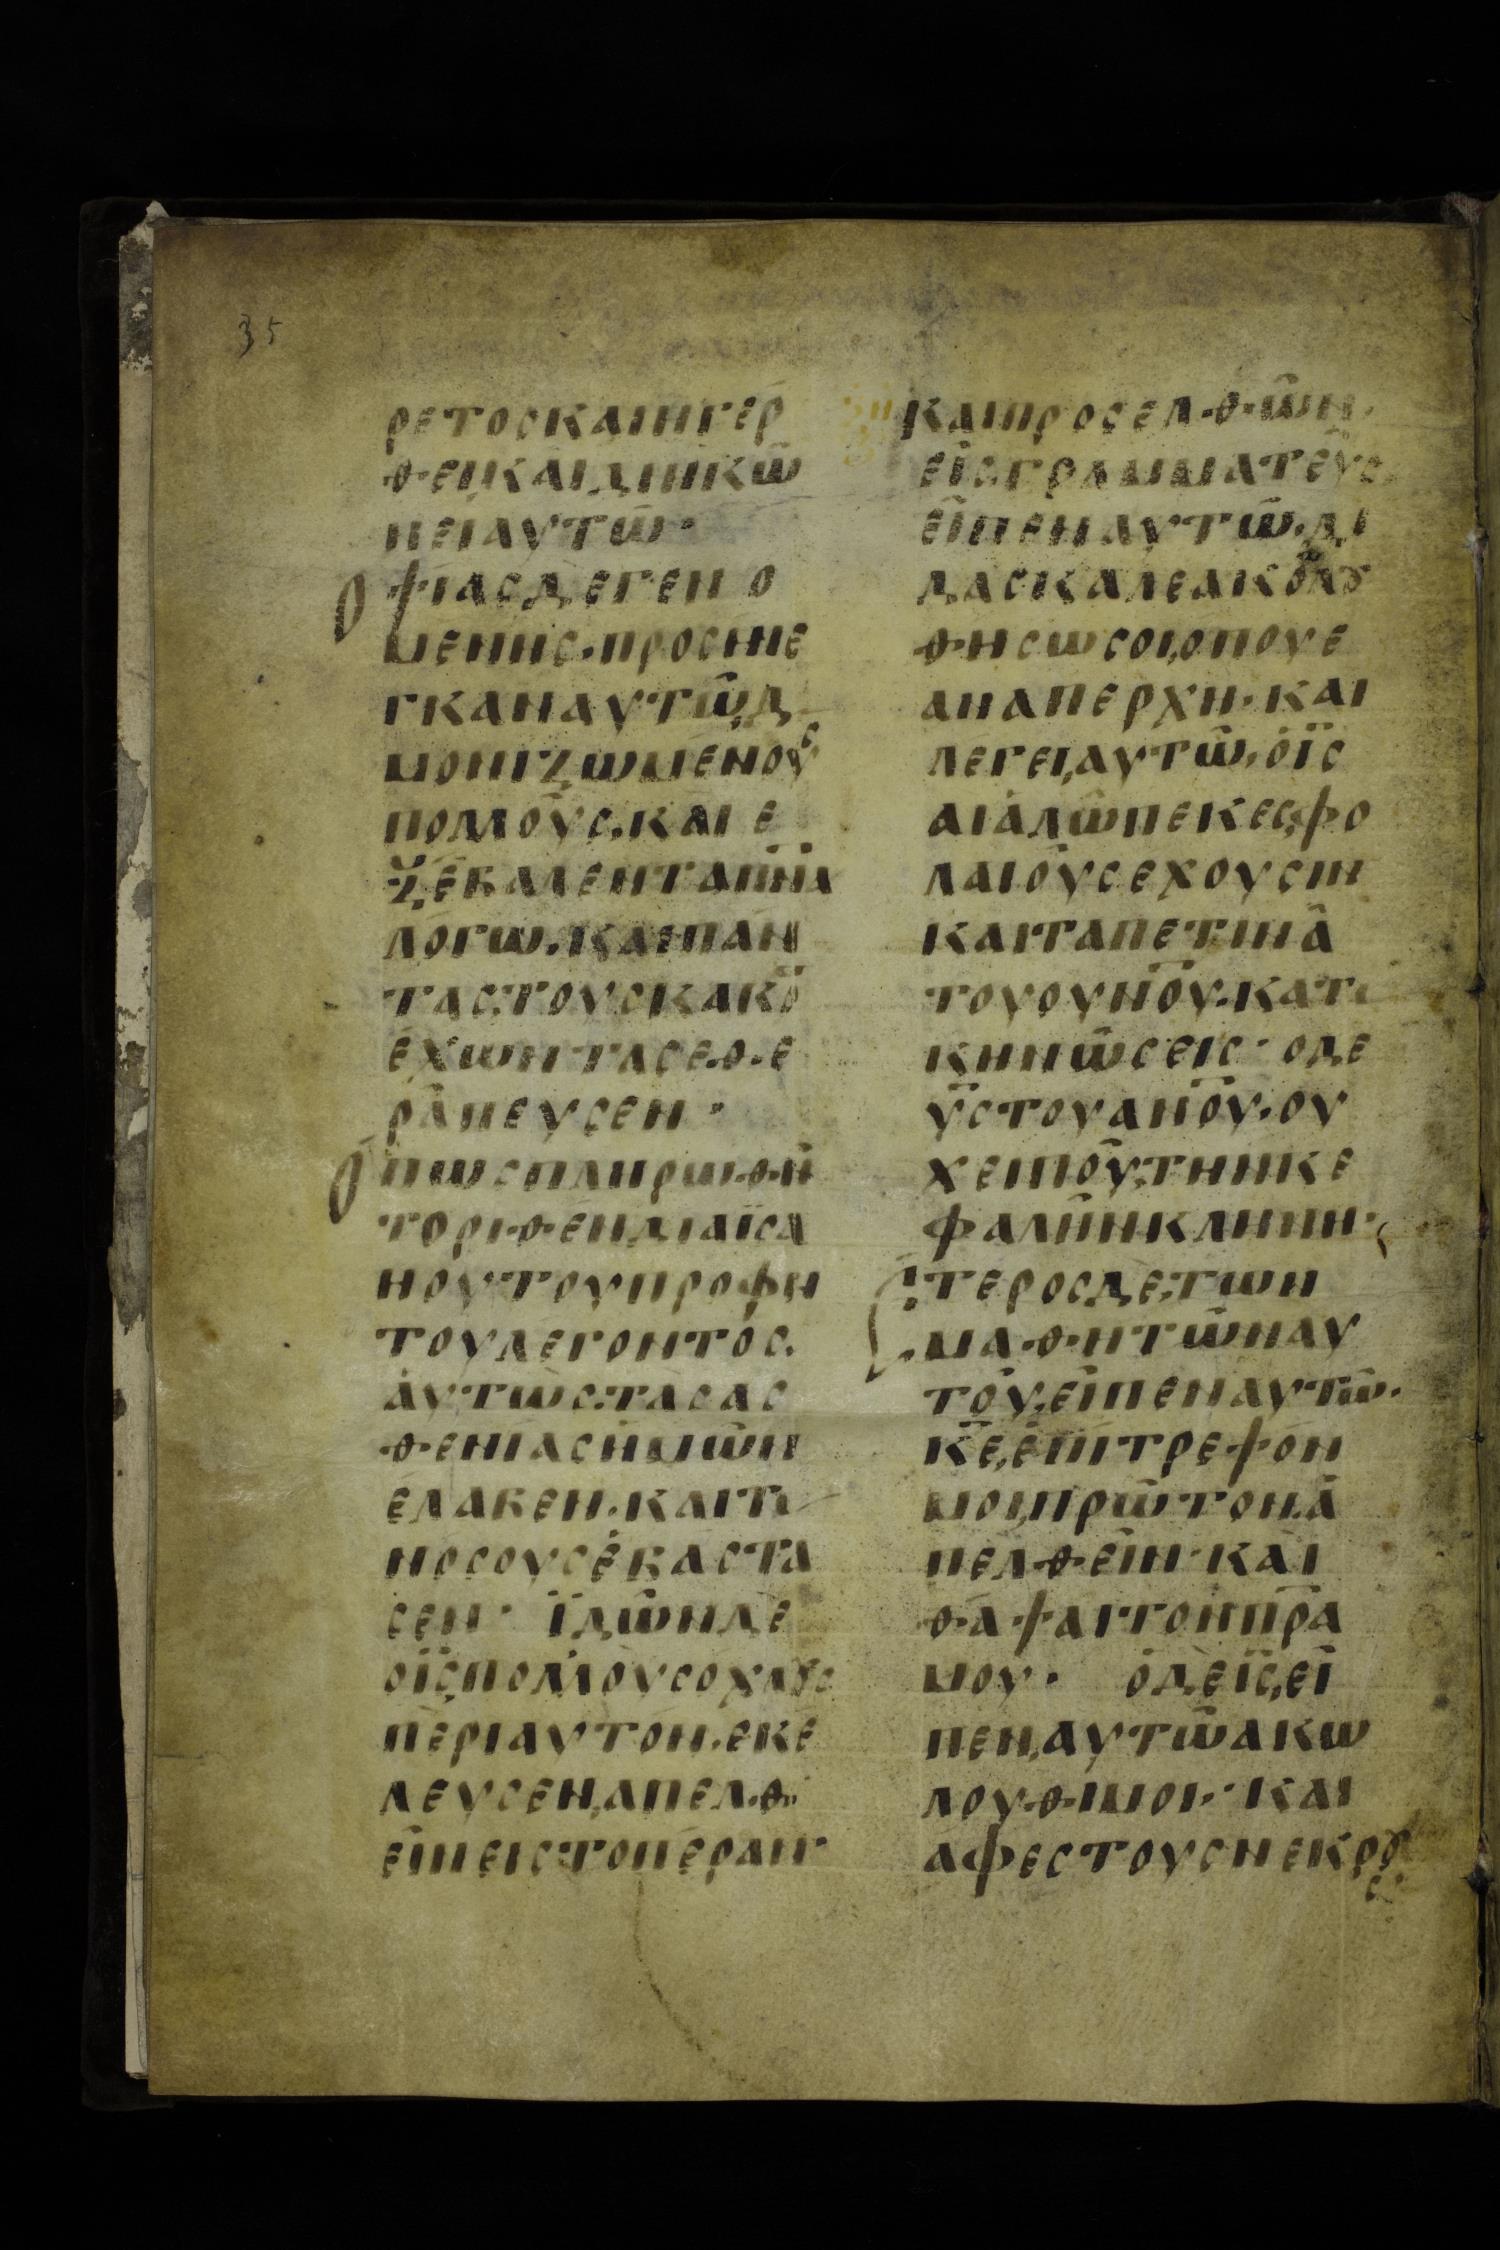 35
ρετοσκαιηγερ
θεικαιδιηκω̄
νειαυτω̄·
Οψιασδεγενο
μενησ·προσηνε
γκαναυτω̄,δ
μονιζωμενουσ
πολλου̂σ,και ε
ξεβαλενταπ̅ν̅α
λογω·καιπαν
τασ·τουσκακο̄
ε̇χωντασεθε
ραπευσεν·
Οπωσπληρωθη
τοριθενδιαϊσα
νουτουπροφη
τουλεγοντοσ.
αυτω̇σ·τασασ
θενιασημω̂ν
ελαβεν·καιτ
νοσουσεβαστα
σεν· ϊδω̂νδε
οι̅σ̅πολλουσοχλουσ
περιαυτον·εκε
λευσεν,απελθ
ειν̂εισ·τοπεραν·
Καιπροσελθω̂ν
εισγραμματευ̂σ
ει̂πεναυτω̂·δι
δασκαλεακολου
θησωσοι,οπουε
αναπερχη·και
λεγει,αυτω̂·οι̅σ̅
αιαλω̂πεκεσ,φο
λαιουσεχουσιν
καιταπετινα̂
τουουν̅ο̅υ·κατ
κηνω̂σεισ· οδε
υ̅σ̅τουαν̅ο̅υ·ου
χειπου̂,τηνκε
φαλη̂νκλινιν·
Ετεροσδε,των
μαθητω̂ναυ
του̂,ει̂πεναυτω̂·
κ̅ε̅,επιτρεψον
μοι,πρω̂τον,α
πελθει̂ν·και
θαψαιτονπ̅ρ̅α
μου· οδει̅σ̅,ει̂
πεν,αυτω̂ακω
λουθιμοι·και
αφεστουσνεκρουσ